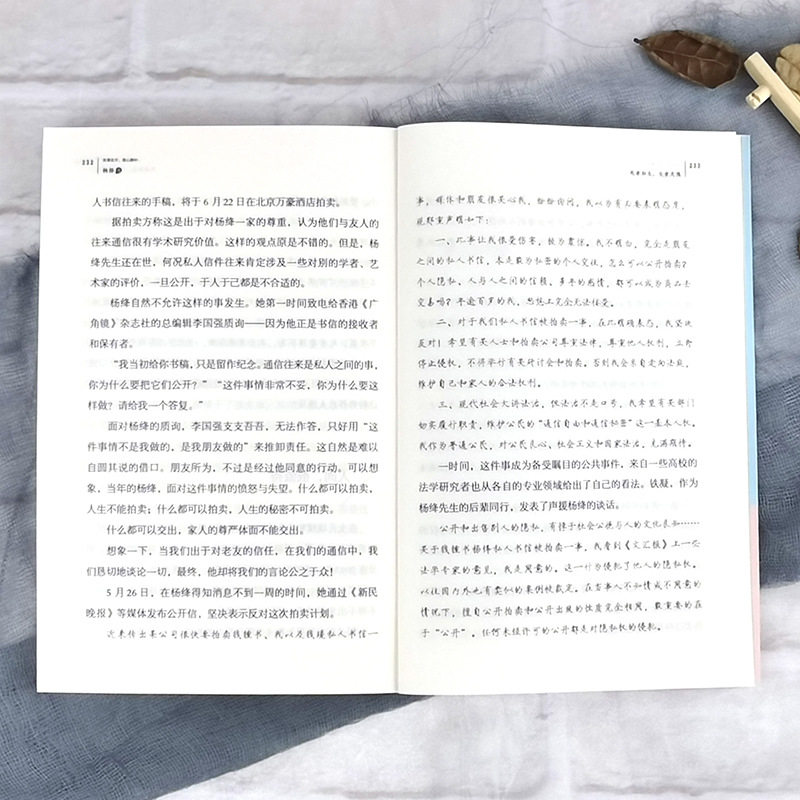 232
杨绛传
人书信往来的手稿，将于6月22日在北京万豪酒店拍卖。
据拍卖方称这是出于对杨绛一家的尊重，认为他们与友人的
往来通信很有学术研究价值。这样的观点原是不错的。但是，杨
绛先生还在世，何况私人信件往来肯定涉及一些对别的学者、艺
术家的评价，一旦公开，于人于己都是不合适的。
杨绛自然不允许这样的事发生。她第一时间致电给香港《广
角镜》杂志社的总编辑李国强质询——因为他正是书信的接收者
和保有者。
“我当初给你书稿，只是留作纪念。通信往来是私人之间的事，
你为什么要把它们公开？”“这件事情非常不妥，你为什么要这
样做？请给我一个答复。”
面对杨绛的质询，李国强支支吾吾，无法作答，只好用“这
件事情不是我做的，是我朋友做的”来推卸责任。这自然是难以
自圆其说的借口。朋友所为，不过是经过他同意的行动。可以想
象，当年的杨绛，面对这件事情的愤怒与失望。什么都可以拍卖，
人生不能拍卖；什么都可以拍卖，人生的秘密不可拍卖。
什么都可以交出，家人的尊严体面不能交出。
想象一下，当我们出于对老友的信任，在我们的通信中，我
们恳切地谈论一切，最终，他却将我们的言论公之于众！
5月26日，在杨绛得知消息不到一周的时间，她通过《新民
晚报》等媒体发布公开信，坚决表示反对这次拍卖计划。
近来传出某公司很快要拍卖钱锺书、我以及钱瑗私人书信一
233
事，媒体和朋友很关心我，纷纷询问，我以为有必要表明态度，
现郑重声明如下：
一、此事让我很受伤害，极为震惊。我不明白，完全是朋友
之间的私人书信，本是最为私密的个人交往，怎么可以公开拍卖？
个人隐私、人与人之间的信赖、多年的感情，都可以成为商品去
交易吗？年逾百岁的我，思想上完全无法接受。
二、对于我们私人书信被拍卖一事，在此明确表态，我坚决
反对！希望有关人士和拍卖公司尊重法律，尊重他人权利，立即
停止侵权，不得举行有关研讨会和拍卖。否则我会亲自走向法庭，
维护自己和家人的合法权利。
三、现代社会大讲法治，但法治不是口号，我希望有关部门
切实履行职责，维护公民的“通信自由和通信秘密”这一基本人权。
我作为普通公民，对公民良心、社会正义和国家法治，充满期待。
一时间，这件事成为备受瞩目的公共事件，来自一些高校的
法学研究者也从各自的专业领域给出了自己的看法。铁凝，作为
杨绛先生的后辈同行，发表了声援杨绛的谈话。
公开和出售别人的隐私，有悖于社会公德与人的文化良知……
关于钱锺书杨绛私人书信被拍卖一事，我看到《文汇报》上一些
法学专家的意见，我是同意的。这一行为侵犯了他人的隐私。
以往国内外也有类似的案例被裁定。在当事人不知情或不同意的
情况下，擅自公开拍卖和公开出版的性质完全相同，最重要的在
于“公开”。任何未经许可的公开都是对隐私权的侵犯。